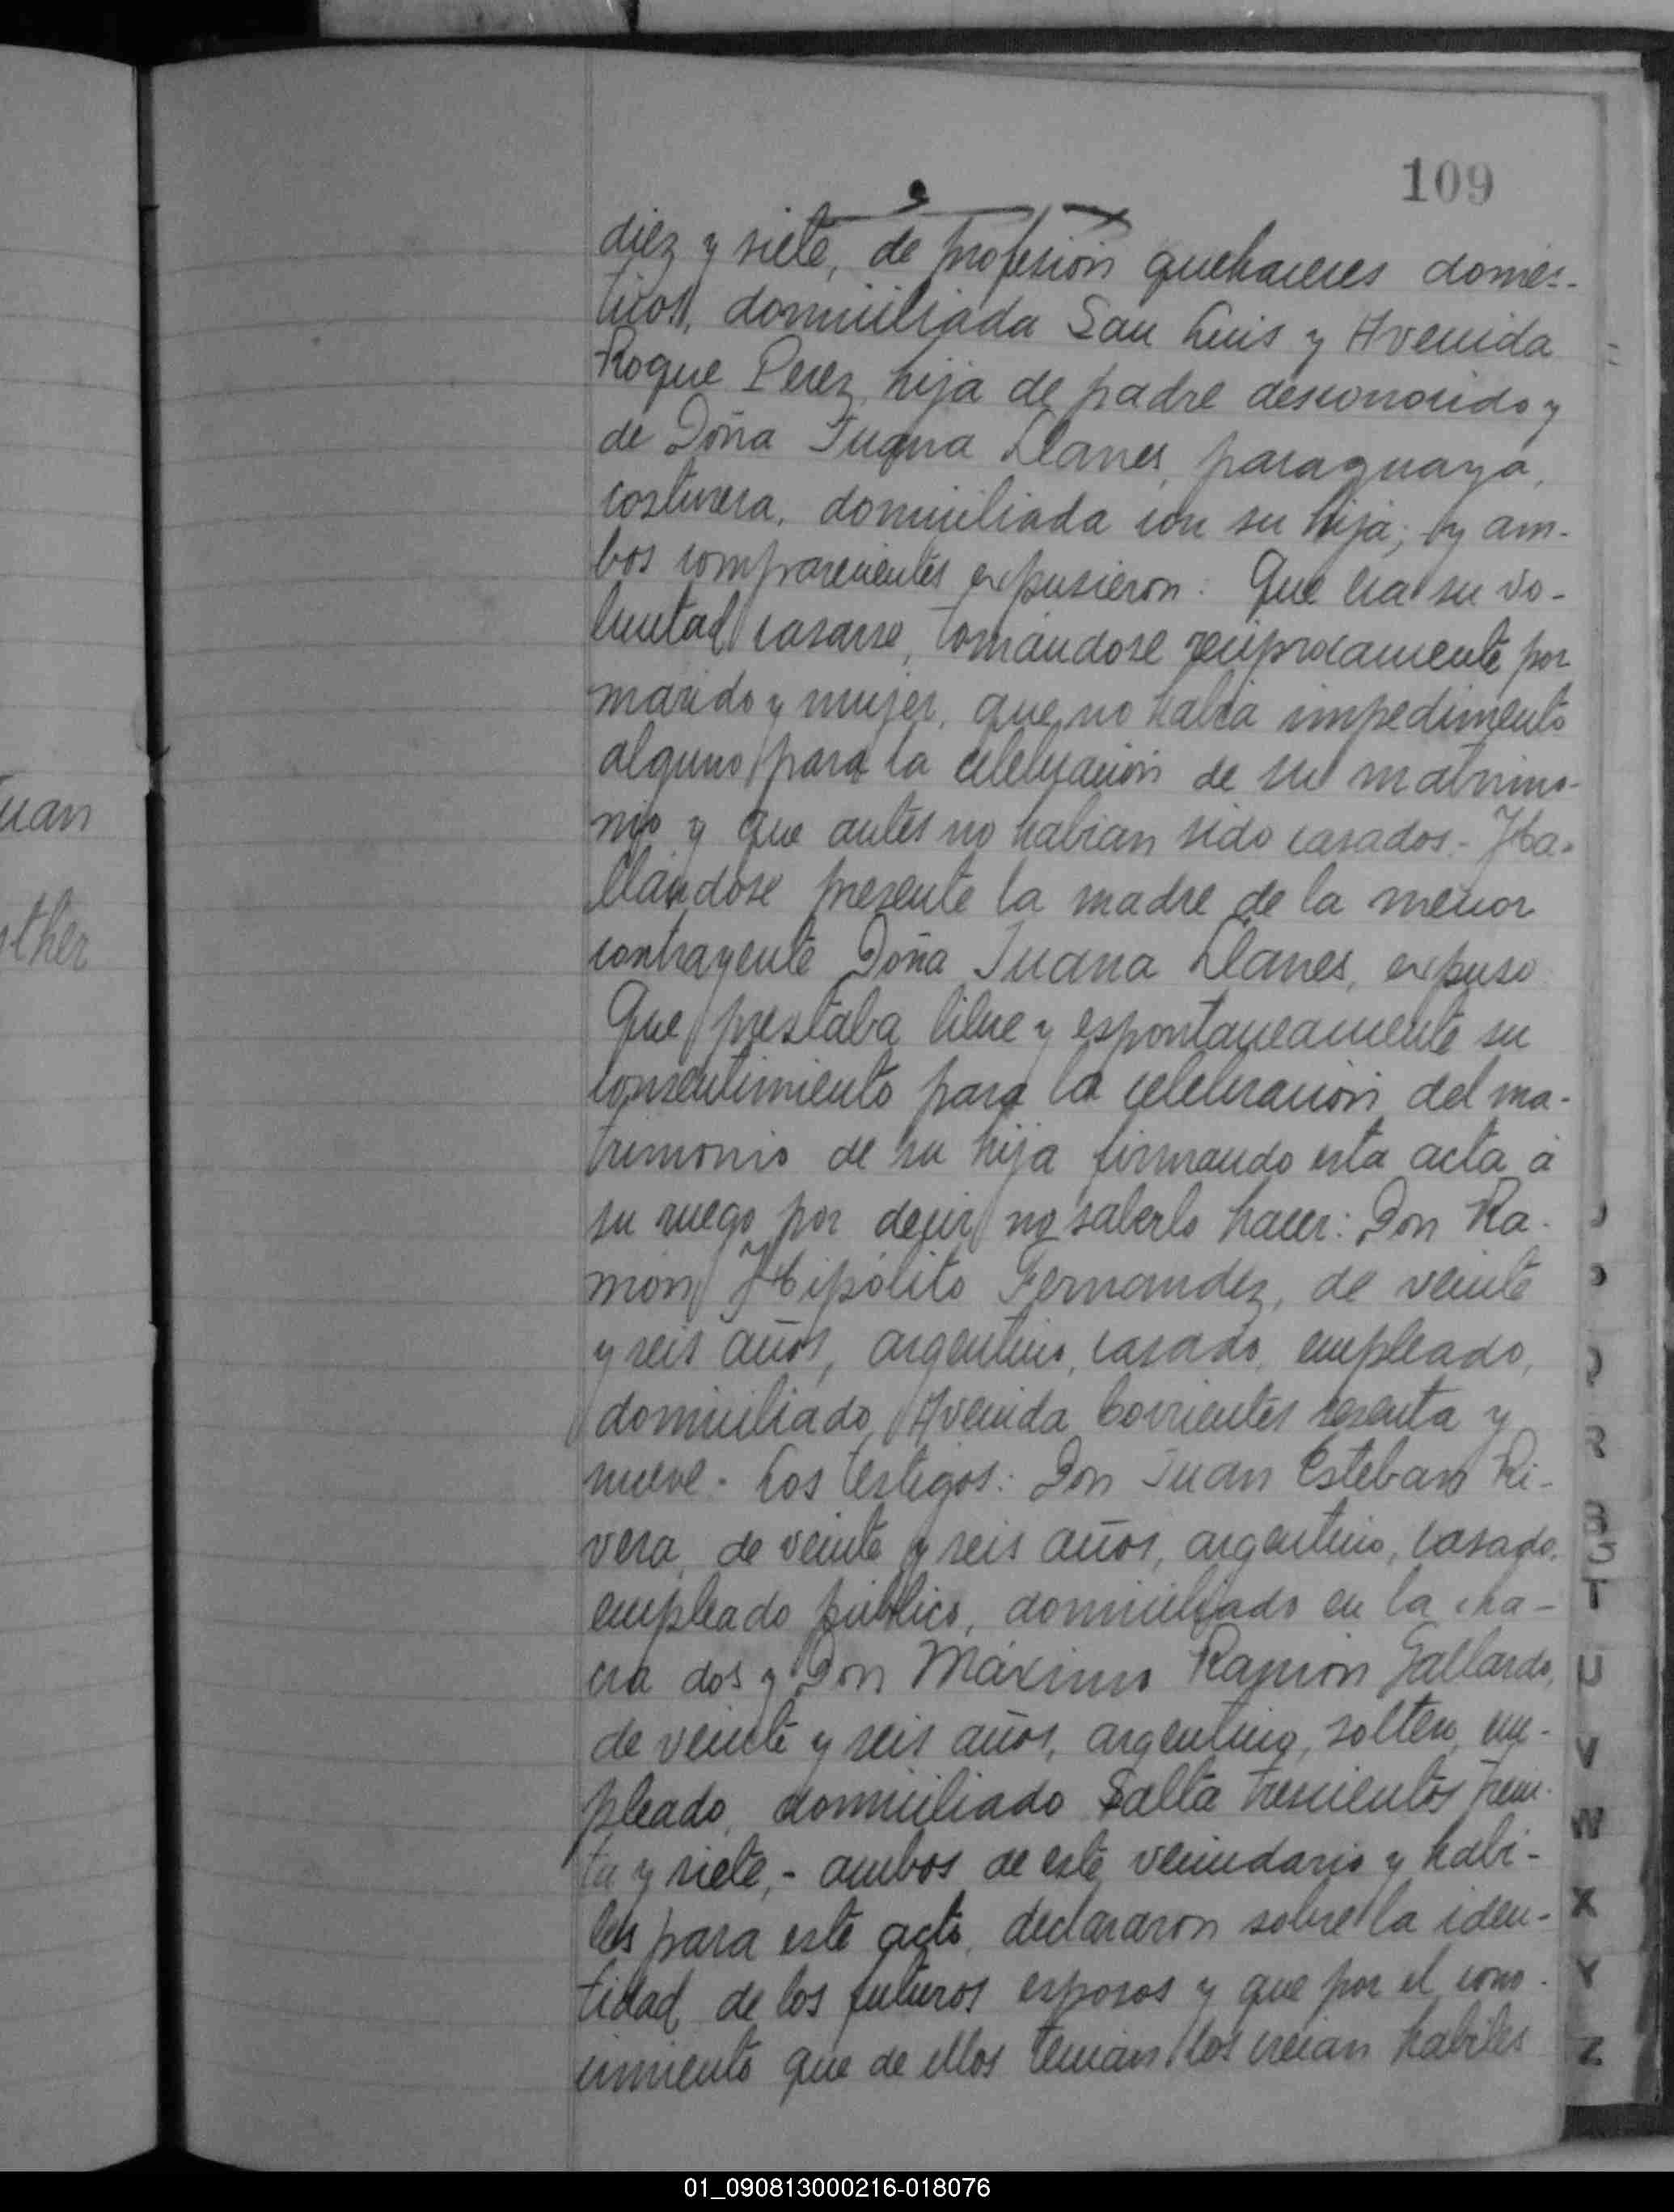 109
diez y siete, de profesión quehaceres domés-
ticos, domiciliada San Luis y Avenida
Roque Perez, hija de padre desconocido y
de Doña Juana Llanes, paraguaya,
costurera, domiciliada con su hija; y am-
bos comparecientes expusieron: Que era su vo-
luntad casarse, tomándose recíprocamente por
marido y mujer, que no había impedimento
alguno para la celebración de su matrimo-
nio y que antes no habían sido casados.- Ha-
llándose presente la madre de la menor
contrayente Doña Juana Llanes, expuso
Que prestaba libre y espontaneamente su
consentimiento para la celebración del ma-
trimonio de su hija firmando esta acta á
su ruego por decir no saberlo hacer: Don Ra-
món Hipólito Fernandez, de veinte
y seis años, argentino, casado, empleado,
domiciliado, Avenida Corrientes sesenta y
nueve.- Los testigos: Don Juan Esteban Ri-
vera, de veinte y seis años, argentino, casado,
empleado público, domiciliado en la cha-
cra dos y Don Máximo Ramón Gallardo,
de veinte y seis años, argentino, soltero, em-
pleado, domiciliado Salta trescientos trein-
ta y siete,- ambos de este vecindario y habi-
les para este acto, declararon sobre la iden-
tidad de los futuros esposos y que por el cono-
cimiento que de ellos tenían los creían habiles
uan
sther
R
S
T
U
V
W
X
Y
Z
01_090813000216-018076